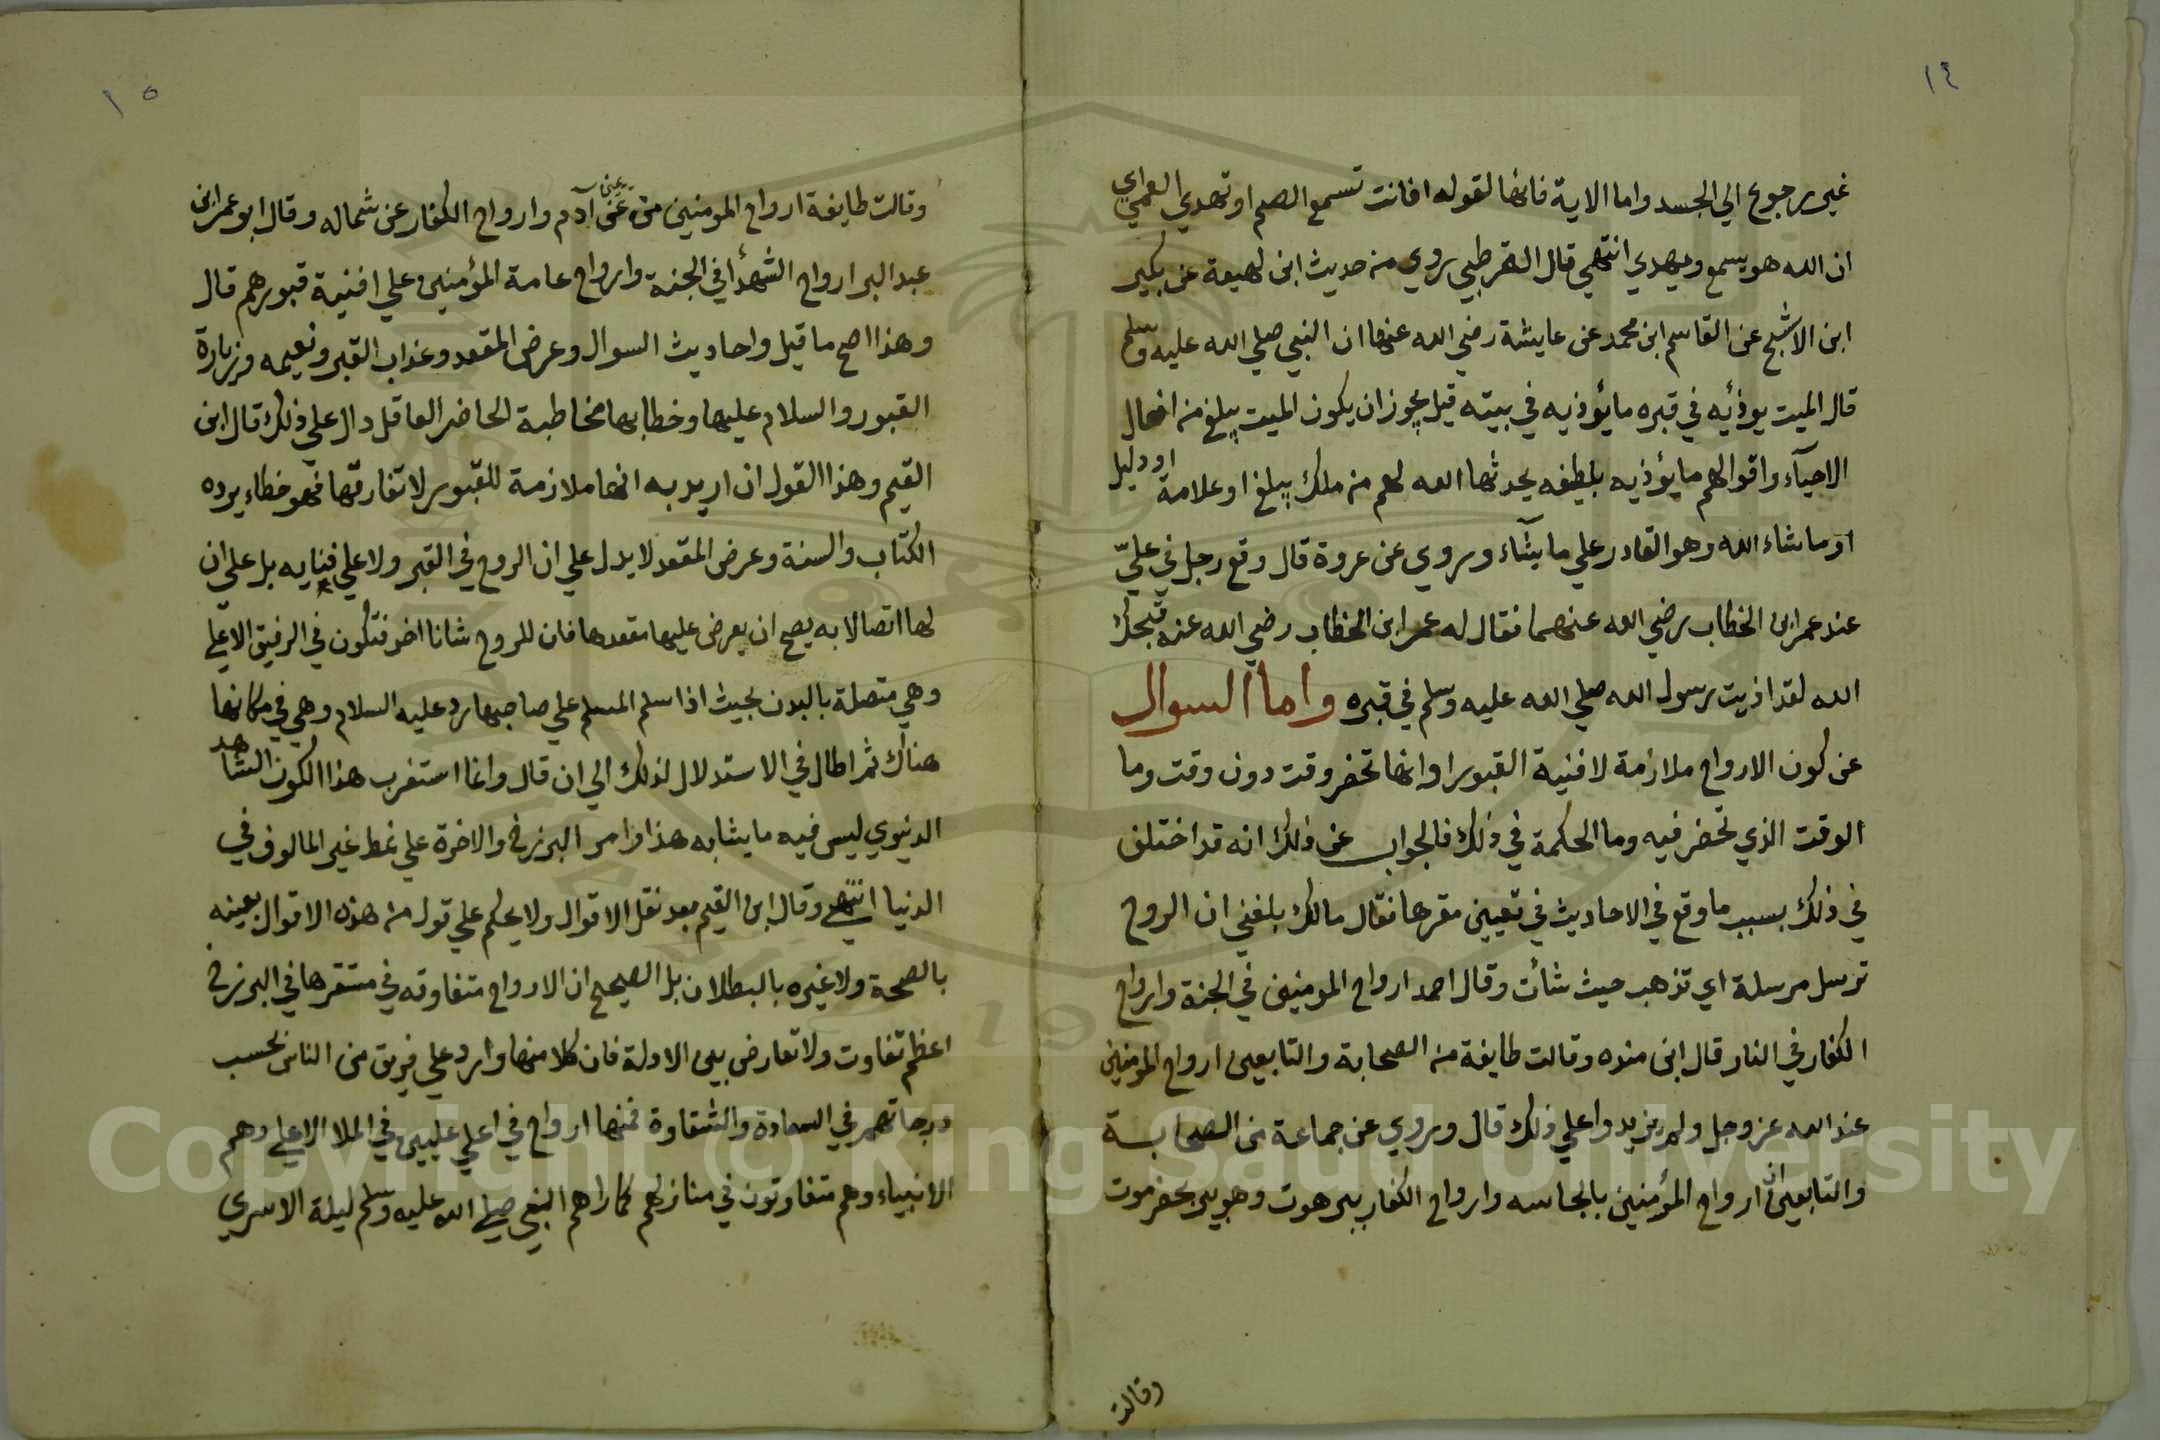 ١٤
غير رجوع الي الجسد واما الاية فانها لقوله افانت تسمع الصم او تهدي العمي
ان الله هو يسمع ويهدي انتهي قال القرطبي روي من حديث ابن لهيعة عن بكير
ابن الاشج عن القاسم ابن محمد عن عايشة رضي الله عنها ان النبي صلي الله عليه وسلم
قال الميت يوذئيه في قبره ما يؤذيه في بيته قيل يجوز ان يكون الميت يبلغ من افعال
الاحيآء واقوالهم ما يؤذيه بلطيفه يحدثها الله لهم من ملك يبلغ او علامة او دليل
او ما شاء الله وهو القادر علي ما يشآء وروي عن عروة قال وقع رجل في عليّ
عند عمر ابن الخطاب رضي الله عنهما فقال له عمر ابن الخطاب رضي الله عنه قبحك
الله لقد اذيت رسول الله صلي الله عليه وسلم في قبره واما السوال
عن كون الارواح ملازمة لافنية القبور او انها تحضر وقت دون وقت وما
الوقت الذي تحضر فيه وما الحكمة في ذلك فالجواب عن ذلك انه قد اختلف
في ذلك بسبب ما وقع في الاحاديث في تعيين مقرها فقال مالك بلغني ان الروح
ترسل مرسلة اي تذهب حيث شأت وقال احمد ارواح المومنين في الجنة وارواح
الكفار في النار قال ابن منده وقالت طايفة من الصحابة والتابعين ارواح المومنين
عند الله عز وجل ولم يزيدوا علي ذلك قال وروي عن جماعة من الصحابة
والتابعين ان ارواح المؤمنين بالجاسه وارواح الكفار ببرهوت وهو بير بحضرموت
وقالت
١٥
وقالت طايفة ارواح المومنين عن يمين آدم وارواح الكفار عن شماله وقال ابو عمر ابن
عبد البر ارواح الشهدأ في الجنة وارواح عامة المؤمنين علي افنية قبورهم قال
وهذا اصح ما قيل واحاديث السوال وعرض المقعد وعذاب القبر ونعيمه وزيارة
القبور والسلام عليها وخطابها مخاطبة الحاضر العاقل دال علي ذلك قال ابن
القيم وهذا القول ان اريد به انها ملازمة للقبور لا تفارقها فهو خطاء يرده
الكتاب والسنة وعرض المقعد لا يدل علي ان الروح في القبر ولا علي فنايه بل علي ان
لها اتصالا به يصح ان يعرض عليها مقعدها فان للروح شانا اخر فتكون في الرفيق الاعلي
وهي متصلة بالبدن بحيث اذا سلم المسلم علي صاحبها رد عليه السلام وهي في مكانها
هناك ثم اطال في الاستدلال لذلك الي ان قال وانما استغرب هذا الكون الشاهد
الدنيوي ليس فيه ما يشابه هذا وامر البرزخ والاخرة علي نمط غير المالوف في
الدنيا انتهي وقال ابن القيم بعد نقل الاقوال ولا يحكم علي قول من هذه الاقوال بعينه
بالصحة ولا غيره بالبطلان بل الصحيح ان الارواح متفاوته في مستقرها في البرزخ
اعظم تفاوت ولا تعارض بين الادلة فان كلا منها وارد علي فريق من الناس بحسب
درجاتهم في السعادة والشقاوة فمنها ارواح في اعلي عليين في الملا الاعلي وهم
الانبياء وهم متفاوتون في منازلهم كما راهم النبي صلي الله عليه وسلم ليلة الاسري
Copyright © King Saud University
1957